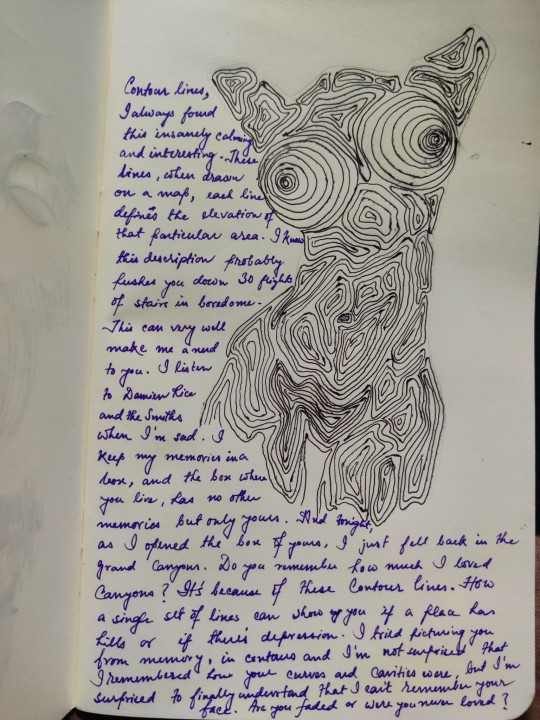 Contour lines,
I always found
this insanely calming
and interesting. These
lines, when drawn
on a map, each line
defines the elevation of
that particular area. I know
this description probably
pushes you down 30 flights
of stairs in boredome.
This can very well
make me a nerd
to you. I listen
to Damien Rice
and the Smiths
when I'm sad. I
keep my memories in a
box, and the box where
you live, has no other
memories but only yours. And tonight,
as I opened the box of yours, I just fell back in the
grand Canyons. Do you remember how much I loved
Canyons? It's because of these Contour lines. How
a single set of lines can show you if a place has
hills or if there's depression. I tried picturing you
from memory, in contours and I'm not surprised that
I remembered how your curves and cavities were, but I'm
surprised to finally understand that I can't remember your
face. Are you faded or were you never loved?